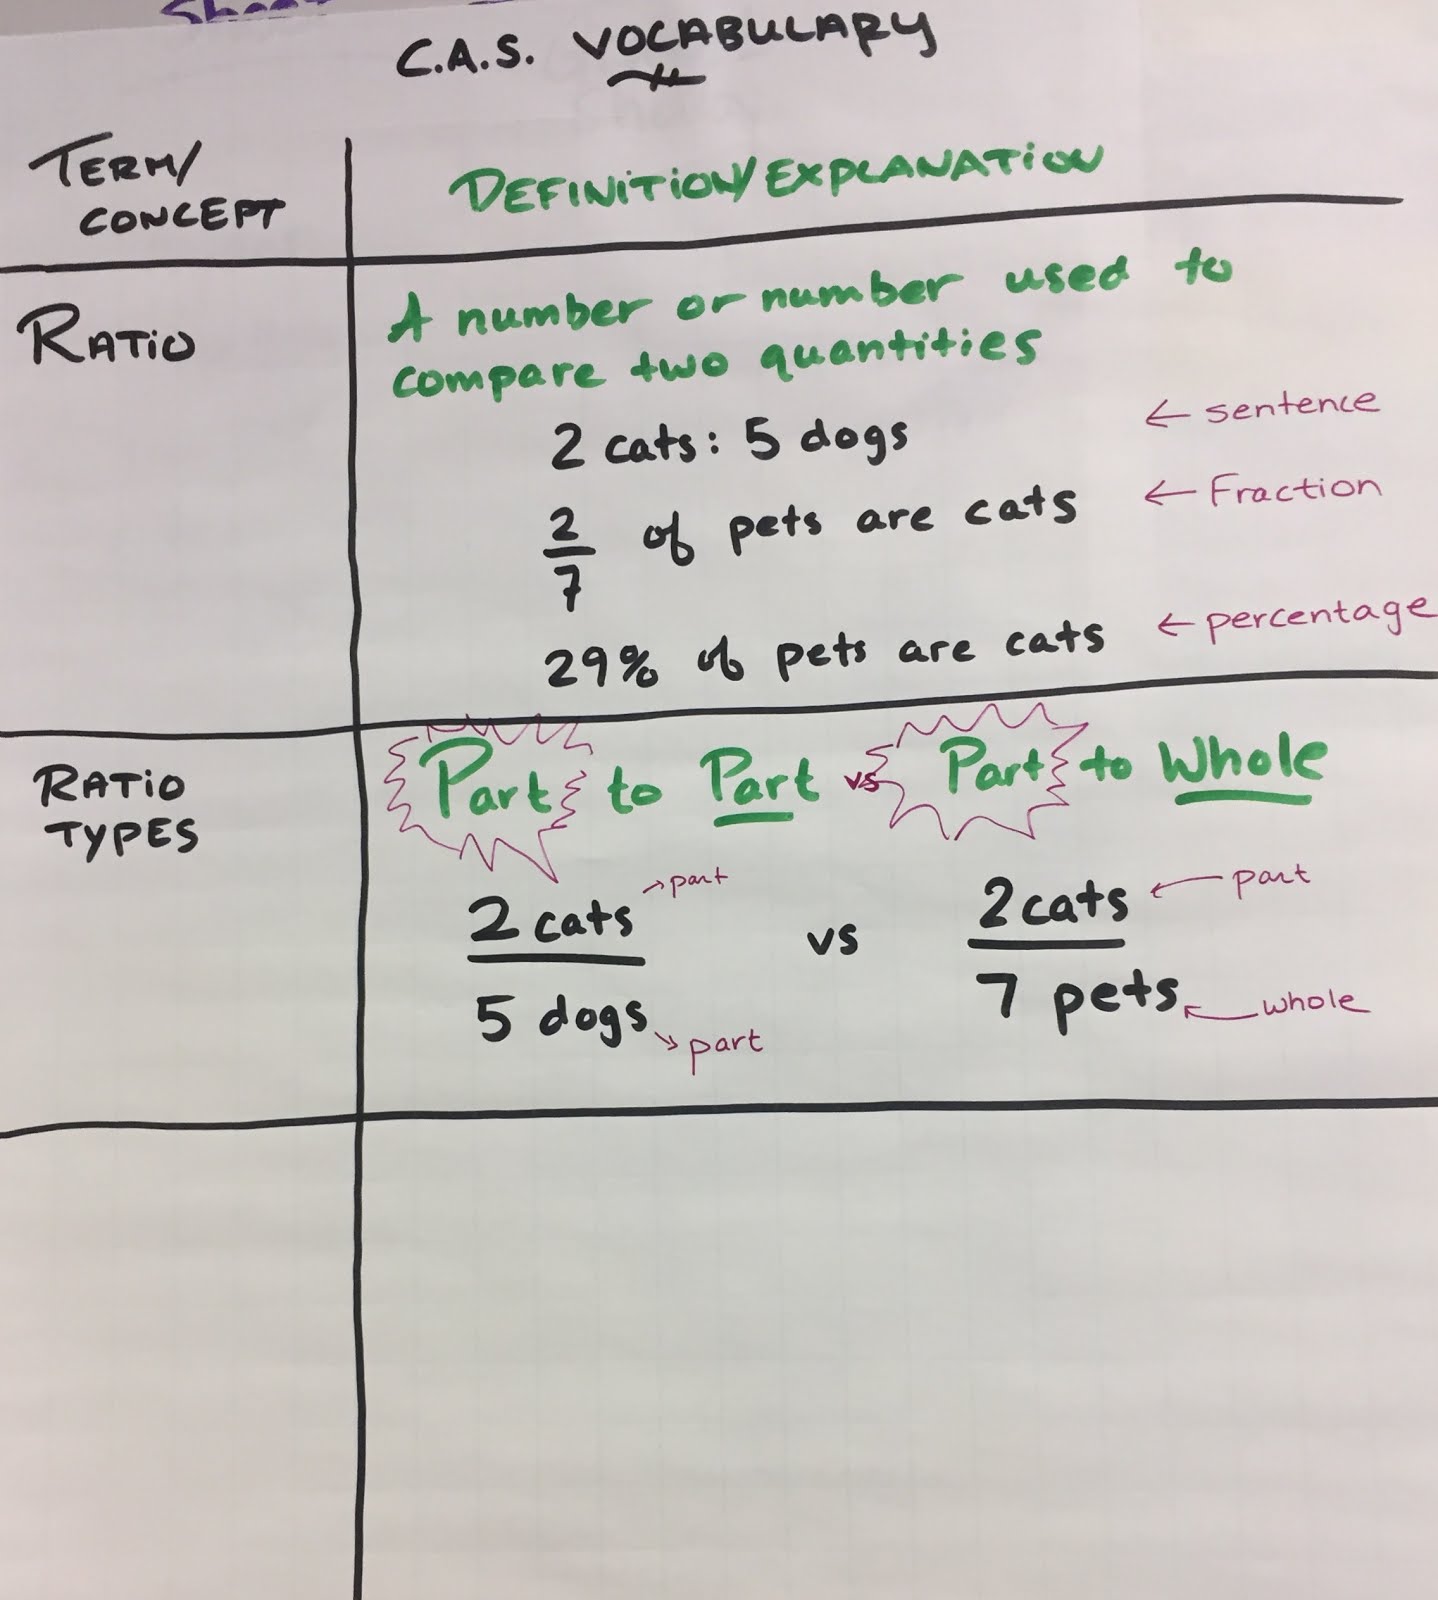 C.A.S. VOCABULARY
TERM/
CONCEPT
DEFINITION/EXPLANATION
RATIO
A number or number used to
compare two quantities
2 cats: 5 dogs ← sentence
2/7 of pets are cats ← Fraction
29% of pets are cats ← percentage
RATIO
TYPES
Part to Part vs Part to Whole
2 cats → part
5 dogs → part
vs
2 cats ← part
7 pets ← whole